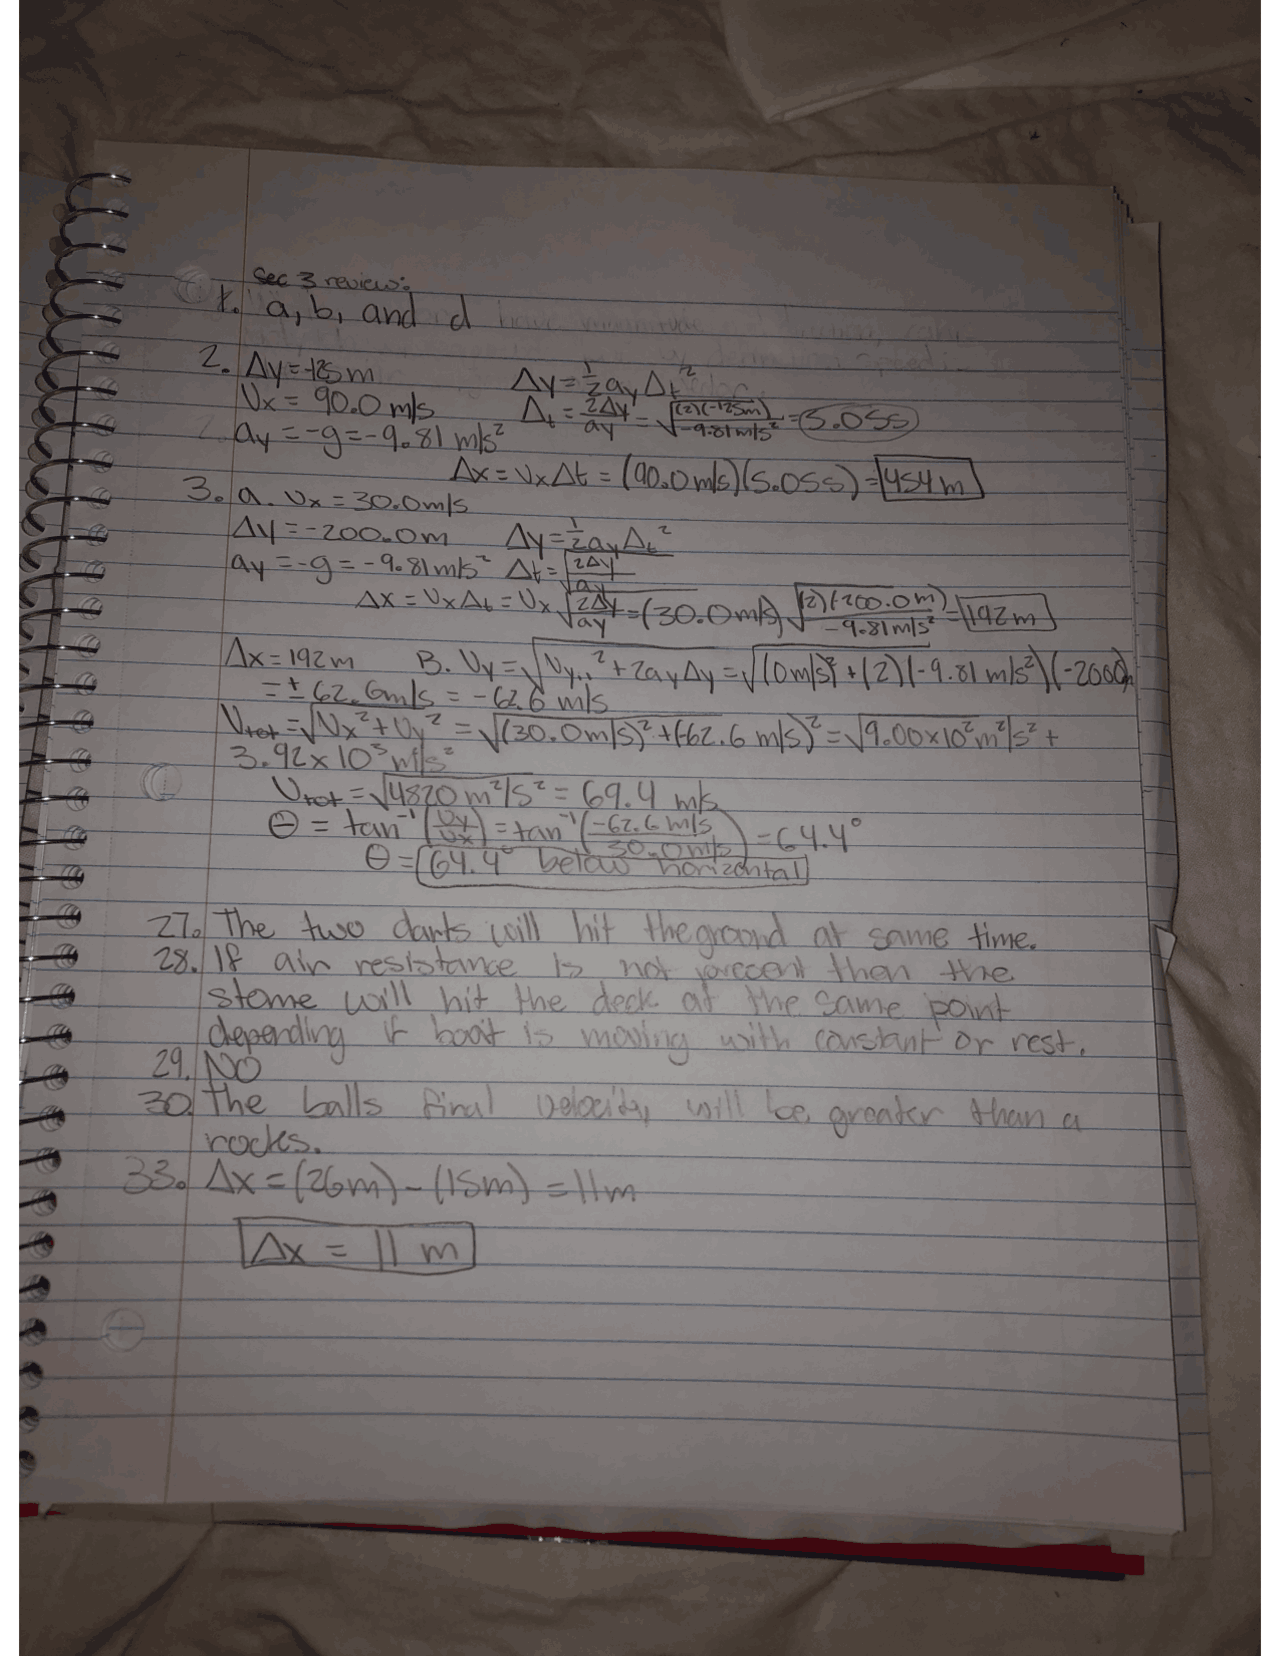 Sec 3 review:
1. a, b, and d
2. Δy = -125m Δy = 1/2 ay Δt²
Vx = 90.0 m/s Δt = 2Δy/ay = √((2)(-125m)/-9.81m/s²) = 5.05s
ay = -g = -9.81 m/s²
Δx = Vx Δt = (90.0 m/s)(5.05s) = 454 m
3. a. Vx = 30.0 m/s
Δy = -200.0 m Δy = 1/2 ay Δt²
ay = -g = -9.81 m/s² Δt = √(2Δy/ay)
Δx = Vx Δt = Vx √(2Δy/ay) = (30.0 m/s) √((2)(200.0 m)/-9.81 m/s²) = 192 m
Δx = 192 m B. Vy = √(Vy,i² + 2ay Δy) = √((0m/s)² + (2)(-9.81 m/s²)(-200.0
= ± 62.6 m/s = -62.6 m/s
Vtot = √(Vx² + Vy²) = √((30.0 m/s)² + (-62.6 m/s)²) = √(9.00 x 10² m²/s² +
3.92 x 10³ m²/s²
Vtot = √(4820 m²/s²) = 69.4 m/s
θ = tan⁻¹(Vy/Vx) = tan⁻¹(-62.6 m/s / 30.0 m/s) = 64.4°
θ = 64.4° below horizontal
27. The two darts will hit the ground at same time.
28. If air resistance is not precent then the
stome will hit the deck at the same point
depending if boat is moving with constant or rest.
29. NO
30. The balls final velocity, will be greater than a
rocks.
33. Δx = (26m) - (15m) = 11m
Δx = 11 m